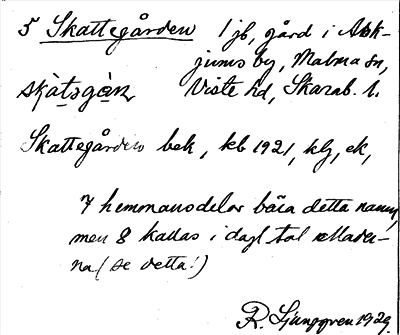 5 Skattegården 1 jb, gård i Ask-
jums by, Malma sn,
skàtsgàn Viste hd, Skarab. l.
Skattegården bek, kb 1921, klj, ek,
7 hemmansdelar bära detta namn,
men 8 kallas i dagl tal
na (se detta!)
R. Ljunggren 1929.